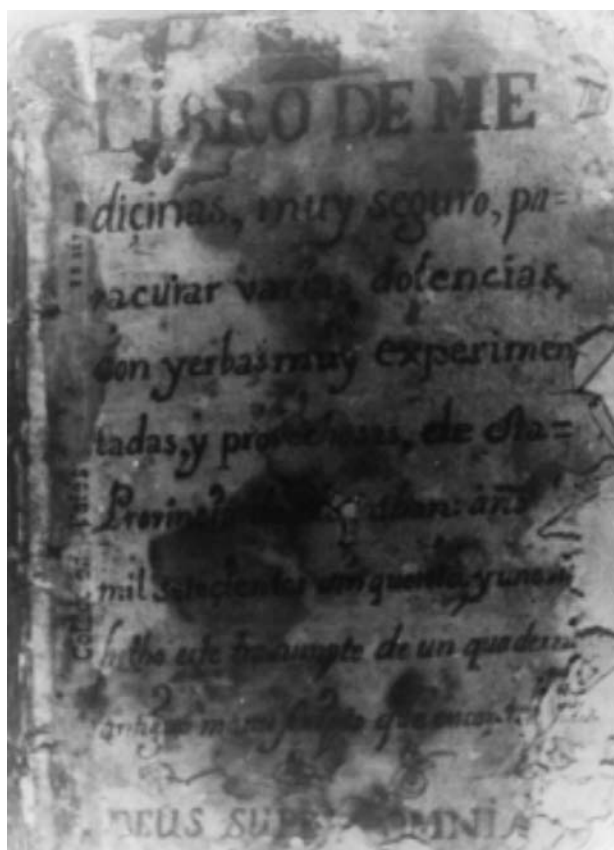 LIBRO DE ME
dicinas, muy seguro, pa=
ra curar varias dolencias,
con yerbas muy experimen
tadas, y provechosas, de esta=
Provincia de Yucathan: año
mil setecientos cinquenta, y uno
hecho este trasumpto de un quaderno
antiguo manuscripto que
DEUS SUPER OMNIA